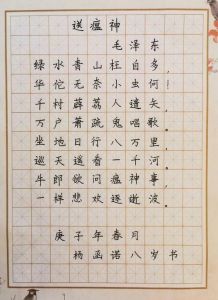 送瘟神
毛泽东
绿水青山枉自多,
华佗无奈小虫何
千村薜荔人遗矢,
万户萧疏鬼唱歌
坐地日行八万里
巡天遥看一千河
牛郎欲问瘟神事
一样悲欢逐逝波
庚子年春月
杨函诺八岁书